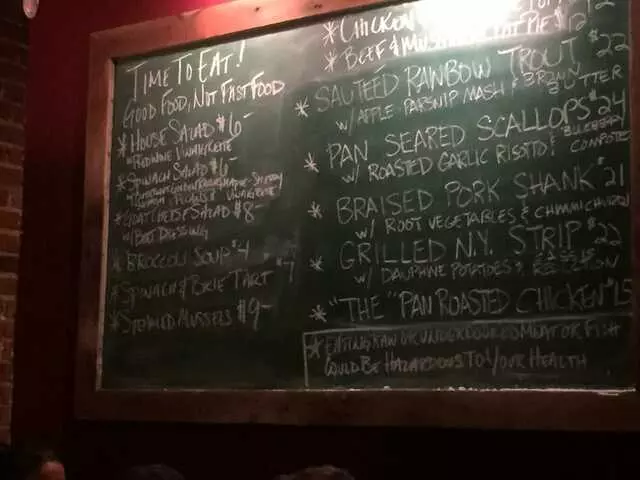 TIME TO EAT!
GOOD FOOD, NOT FAST FOOD
* HOUSE SALAD $6-
W/ RED WINE VINAIGRETTE
* SPINACH SALAD $6-
VINAIGRETTE
* GOAT CHEESE SALAD $8-
W/ BEET DRESSING
* BROCCOLI SOUP $4
* SPINACH & BRIE TART $7
* STEWED MUSSELS $9-
* CHICKEN
* BEEF & PIE $12
* SAUTEED RAINBOW TROUT $22
W/ APPLE PARSNIP MASH & BUTTER
* PAN SEARED SCALLOPS $24
W/ ROASTED GARLIC RISOTTO & BLUEBERRY COMPOTE
* BRAISED PORK SHANK $21
W/ ROOT VEGETABLES & CHIMICHURRI
* GRILLED N.Y. STRIP $22
W/ DAUPHINE POTATOES &
* "THE" PAN ROASTED CHICKEN $15
* EATING RAW OR UNDERCOOKED MEAT OR FISH
COULD BE HAZARDOUS TO YOUR HEALTH